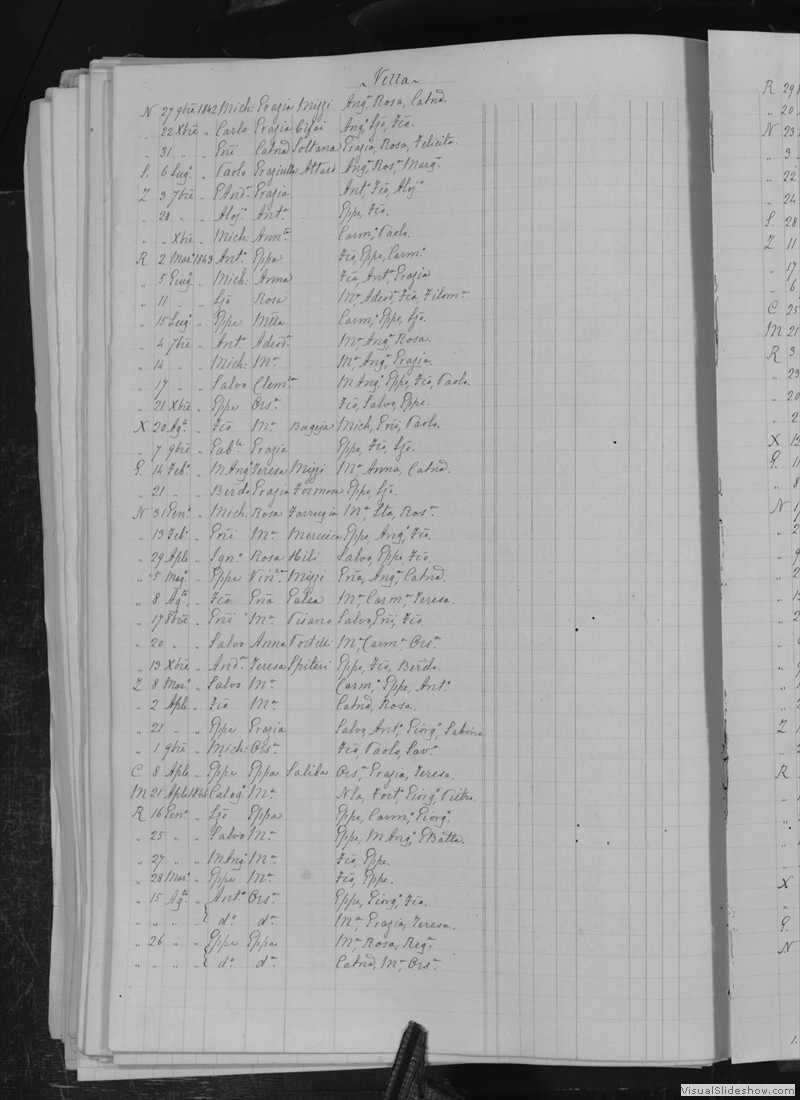 Vella
N 27 9bre 1842 Mich: Grazia Mizzi Ang:, Rosa, Catnd.
" 22 Xbre " Carlo Grazia Ang:, Ljo, Fco.
" 31 " " Pri Catnd Sultana Grazia, Rosa, Felicita
S. 6 Lug: " Paolo Graziulla Attard Ang:, Ros:, Marg:
Z 3 7bre " Grazia Ant:, Fco, Aloj:
" 28 " " Aloj: Ant: Gppe, Fco.
" " Xbre " Mich: Carm:, Paolo.
R 2 Mar: 1843 Ant: Gppa Fco, Gppe, Carm:
" 5 Giug: " Mich: Anna Fco, Ant:, Grazia
" 11 " " Ljo Rosa Ma, Adeod:, Fco, Filom:
" 15 Lug: " Gppe Carm:, Gppe, Ljo.
" 4 7bre " Ant: Adeod: Ma, Ang:, Rosa.
" 14 " " Mich: Ma Ma, Ang:, Grazia.
" 17 " " Salvo Clem: M Ang:, Gppe, Fco, Paolo.
" 21 Xbre " Gppe Ors: Fco, Salvo, Gppe.
X 20 Agto " Fco Ma Bugeja Mich, Pri, Paolo.
" 7 9bre " Gab: Grazia Gppe, Fco, Ljo.
G. 14 Feb: " M Ang: Teresa Mizzi Ma, Anna, Catnd.
" 21 " " Berdo Grazia Formosa Gppe, Ljo.
N 31 Gen: " Mich: Rosa Farrugia Ma, Ros:
" 13 Feb: " Pri Ma Mercieca Gppe, Ang:, Fco.
" 29 Aple " Ign: Rosa Hili Salvo, Gppe, Fco.
" 5 Mag: " Gppe Mizzi Ang:, Catnd.
" 8 Agto " Fco Galea Ma, Carm:, Teresa.
" 17 8bre " Pri Ma Pisano Salvo, Pri, Fco.
" 20 " " Salvo Anna Portelli Ma, Carm:, Ors:
" 13 Xbre " And: Teresa Spiteri Gppe, Fco, Berdo.
Z 8 Mar: " Salvo Ma Carm:, Gppe, Ant:
" 2 Aple " Fco Ma Catnd, Rosa.
" 21 " " Gppe Grazia Salvo, Ant:, Giorg:, Sabina
" 1 9bre " Mich: Ors: Fco, Paolo, Sav:
C 8 Aple " Gppe Gppa Saliba Ors:, Grazia, Teresa.
M 21 Aple 1844 Calog: Ma Nla, Fort:, Giorg:, Pietro.
R 16 Gen: " Ljo Gppa Gppe, Carm:, Giorg:
" 25 " " Salvo Ma Gppe, M Ang:, GBatta.
" 27 " " M Ang: Ma Fco, Gppe.
" 28 Mar: " Gppe Ma Fco, Gppe.
" 15 Agto " Ant: Ors: Gppe, Giorg:, Fco.
" " " " do do Ma, Grazia, Teresa.
" 26 " " Gppe Gppa Ma, Rosa, Reg:
" " " " do do Catnd, Ma, Ors:
R 29
" 20
N 23
" 3
" 22
" 24
S. 28
Z 11
" 17
" 6
C 25
M 21
R 3
" 23
" 20
" 2
X 12
G. 11
" 8
N
Z
R
X
G.
N
VisualSlideshow.com